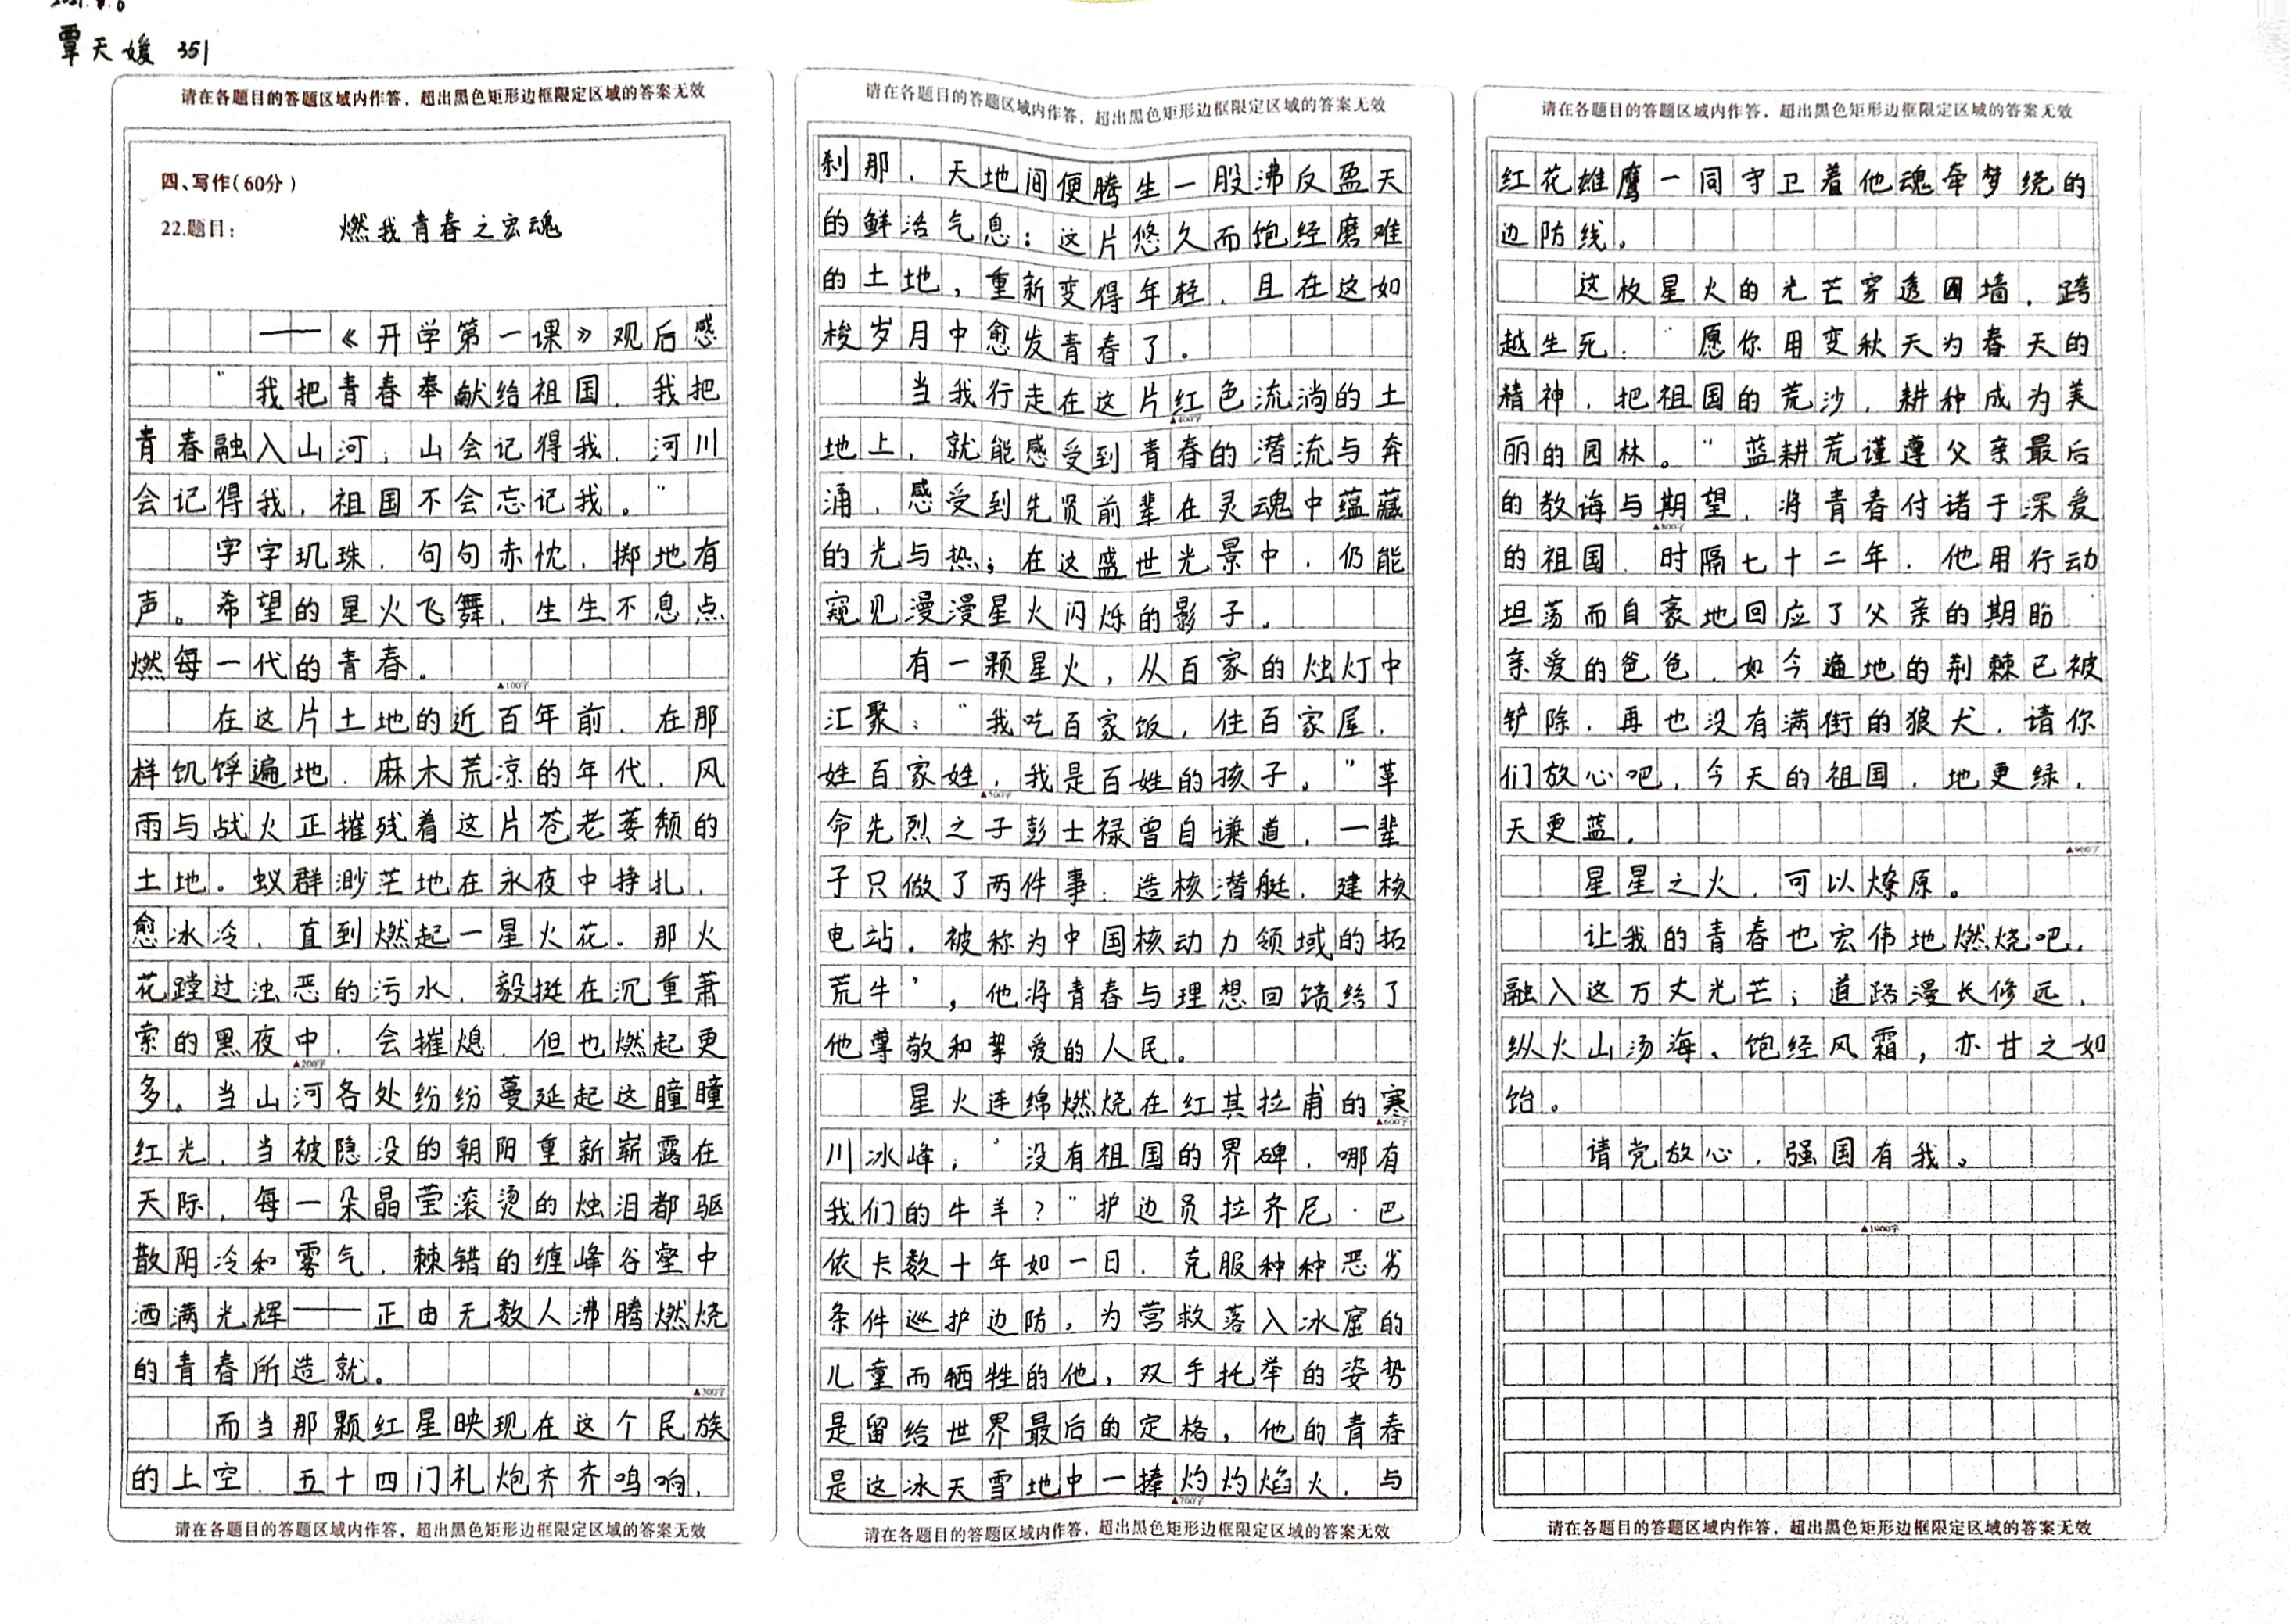 覃天媛 351
请在各题目的答题区域内作答，超出黑色矩形边框限定区域的答案无效
四、写作(60分)
22.题目：
燃我青春之宏魂
——《开学第一课》观后感
"我把青春奉献给祖国，我把
青春融入山河；山会记得我，河川
会记得我，祖国不会忘记我。"
字字玑珠，句句赤忱，掷地有
声。希望的星火飞舞，生生不息点
燃每一代的青春。
▲100字
在这片土地的近百年前，在那
样饥饿遍地、麻木荒凉的年代，风
雨与战火正摧残着这片苍老萎颓的
土地。蚁群渺茫地在永夜中挣扎，
愈冰冷，直到燃起一星火花。那火
花蹚过浊恶的污水，毅挺在沉重萧
索的黑夜中，会摧熄，但也燃起更
▲200字
多。当山河各处纷纷蔓延起这瞳瞳
红光，当被隐没的朝阳重新崭露在
天际，每一朵晶莹滚烫的烛泪都驱
散阴冷和雾气，棘错的缠峰谷壑中
洒满光辉——正由无数人沸腾燃烧
的青春所造就。
▲300字
而当那颗红星映现在这个民族
的上空，五十四门礼炮齐齐鸣响，
请在各题目的答题区域内作答，超出黑色矩形边框限定区域的答案无效
请在各题目的答题区域内作答，超出黑色矩形边框限定区域的答案无效
刹那，天地间便腾生一股沸反盈天
的鲜活气息：这片悠久而饱经磨难
的土地，重新变得年轻，且在这如
梭岁月中愈发青春了。
当我行走在这片红色流淌的土
▲400字
地上，就能感受到青春的潜流与奔
涌，感受到先贤前辈在灵魂中蕴藏
的光与热；在这盛世光景中，仍能
窥见漫漫星火闪烁的影子。
有一颗星火，从百家的烛灯中
汇聚："我吃百家饭，住百家屋，
姓百家姓，我是百姓的孩子。"革
▲500字
命先烈之子彭士禄曾自谦道，一辈
子只做了两件事：造核潜艇，建核
电站。被称为中国核动力领域的拓
荒牛'，他将青春与理想回馈给了
他尊敬和挚爱的人民。
星火连绵燃烧在红其拉甫的寒
▲600字
川冰峰；"没有祖国的界碑，哪有
我们的牛羊？"护边员拉齐尼·巴
依卡数十年如一日，克服种种恶劣
条件巡护边防，为营救落入冰窟的
儿童而牺牲的他，双手托举的姿势
是留给世界最后的定格，他的青春
是这冰天雪地中一捧灼灼焰火，与
▲700字
请在各题目的答题区域内作答，超出黑色矩形边框限定区域的答案无效
请在各题目的答题区域内作答，超出黑色矩形边框限定区域的答案无效
红花雄鹰一同守卫着他魂牵梦绕的
边防线。
这枚星火的光芒穿透围墙，跨
越生死："愿你用变秋天为春天的
精神，把祖国的荒沙，耕种成为美
丽的园林。"蓝耕荒谨遵父亲最后
的教诲与期望，将青春付诸于深爱
▲800字
的祖国，时隔七十二年，他用行动
坦荡而自豪地回应了父亲的期盼，
亲爱的爸爸，如今遍地的荆棘已被
铲除，再也没有满街的狼犬，请你
们放心吧，今天的祖国，地更绿，
天更蓝。
▲900字
星星之火，可以燎原。
让我的青春也宏伟地燃烧吧，
融入这万丈光芒；道路漫长修远，
纵火山汤海、饱经风霜，亦甘之如
饴。
请党放心，强国有我。
▲1000字
请在各题目的答题区域内作答，超出黑色矩形边框限定区域的答案无效